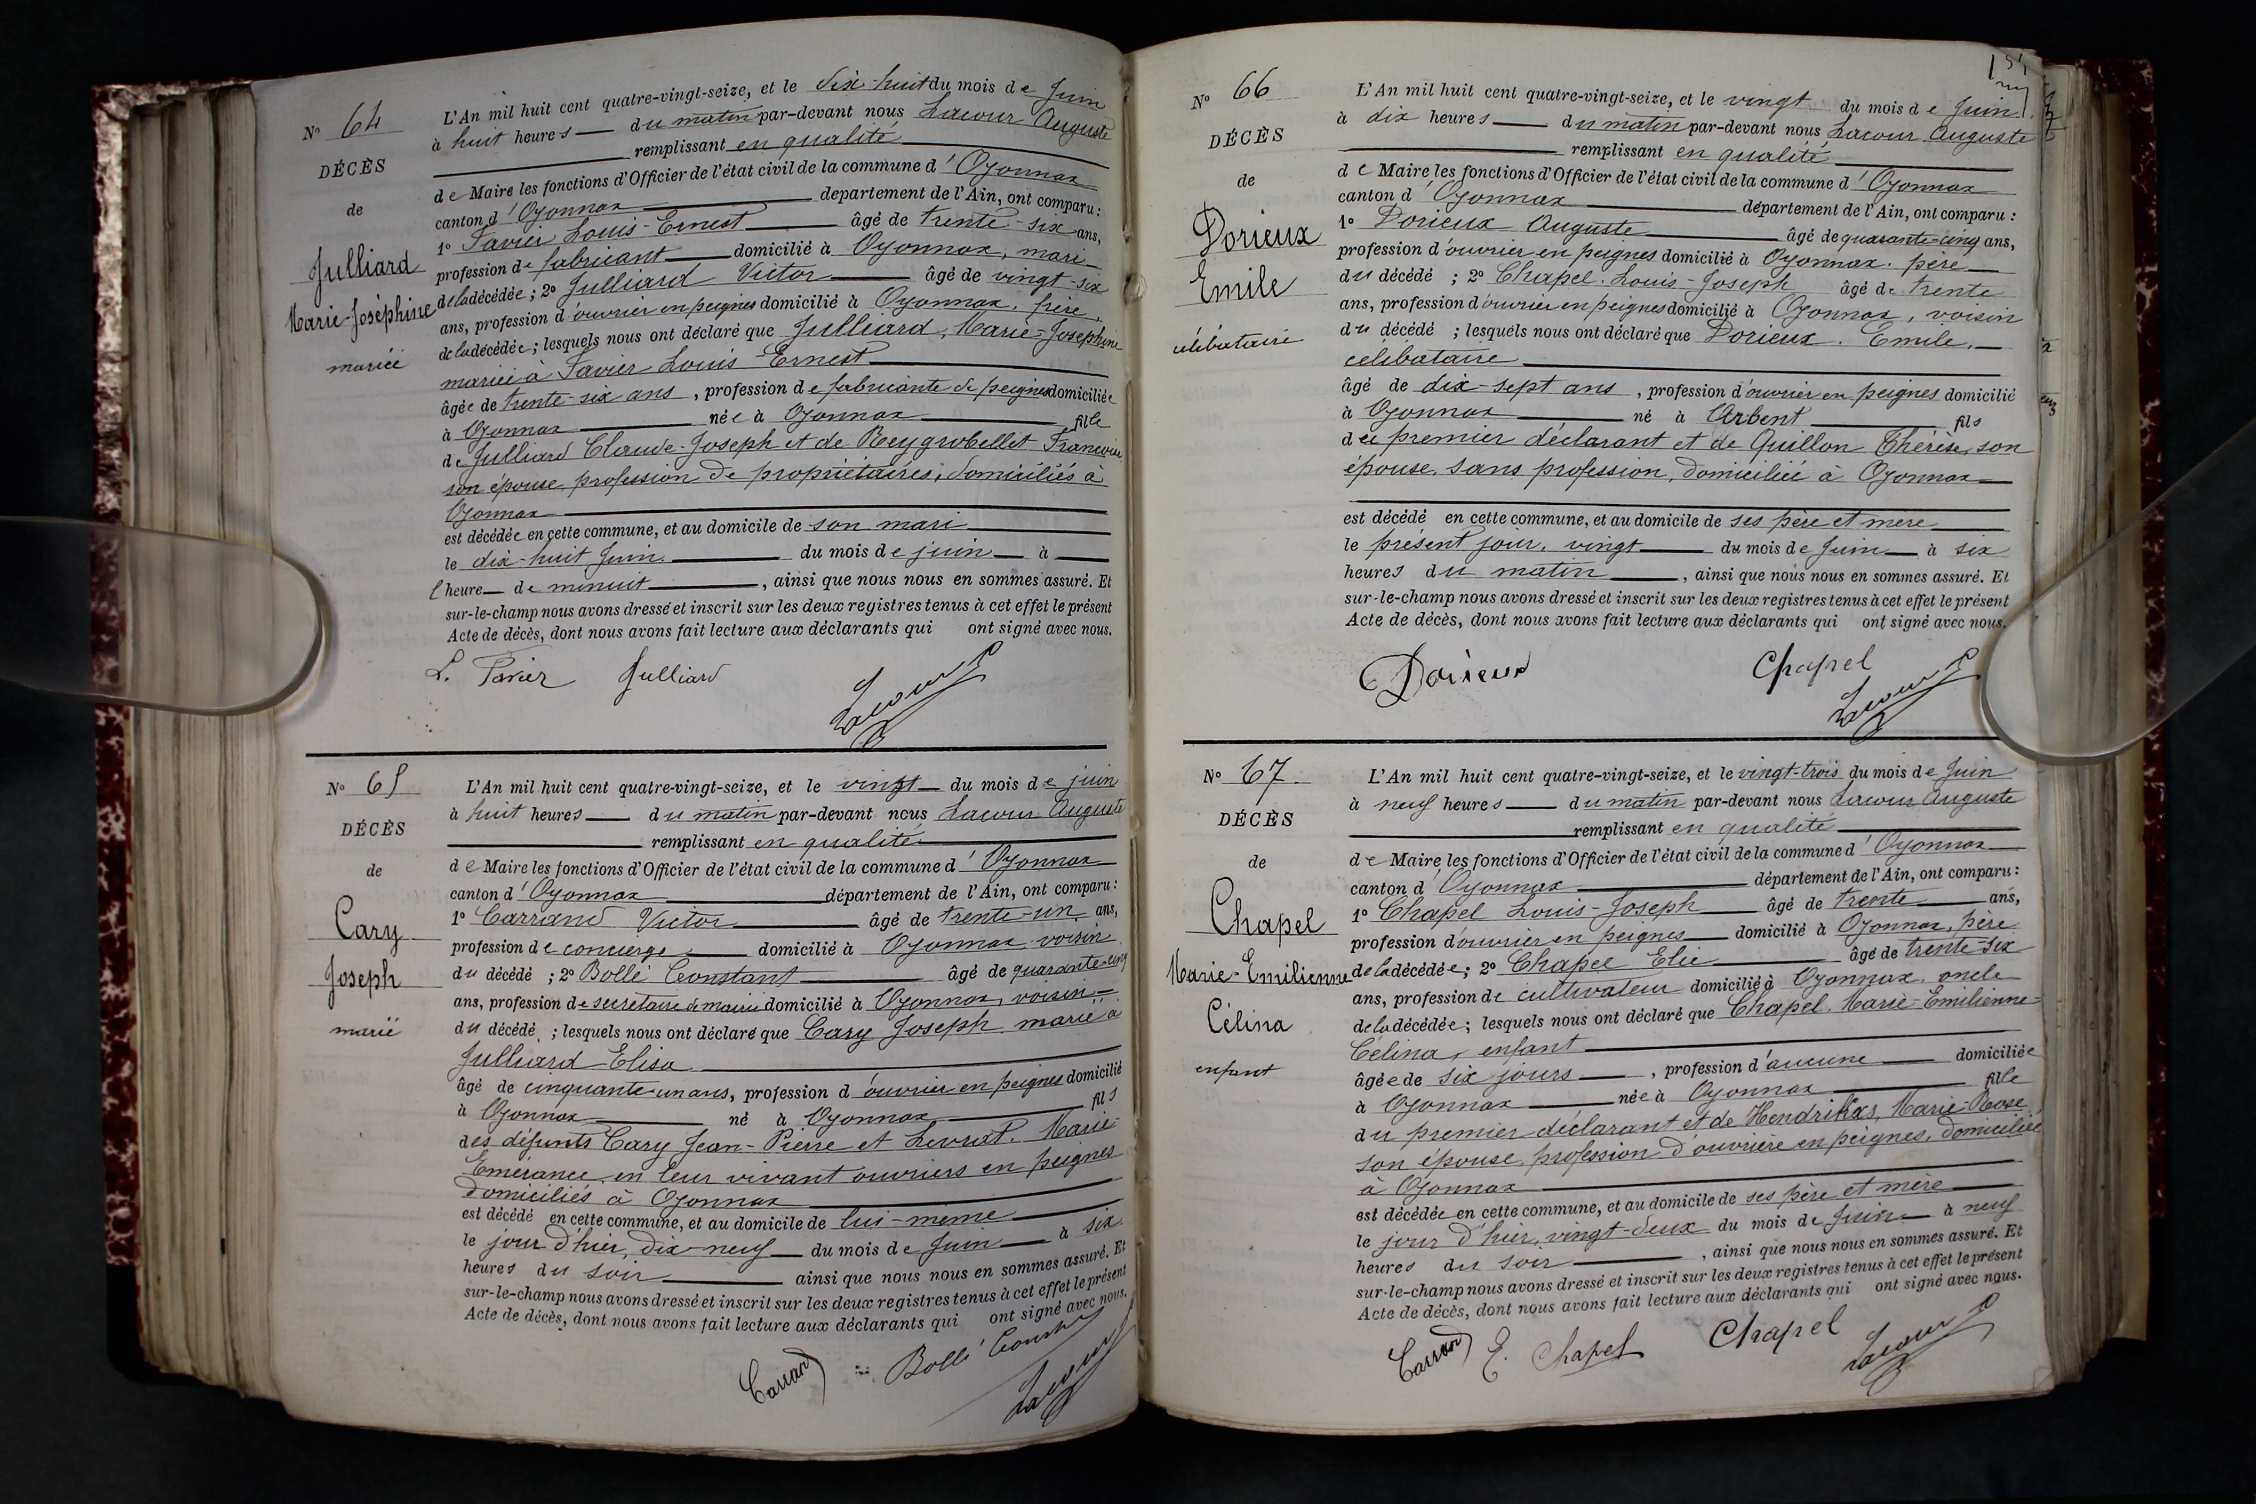 N° 64
DÉCÈS
de
Julliard
Marie-Joséphine
mariée
L'An mil huit cent quatre-vingt-seize, et le dix-huit du mois de Juin
à huit heures du matin par-devant nous Lacour Auguste
remplissant en qualité
de Maire les fonctions d'Officier de l'état civil de la commune d'Oyonnax
canton d'Oyonnax département de l'Ain, ont comparu :
1° Tavier Louis-Ernest âgé de trente-six ans,
profession de fabricant domicilié à Oyonnax, mari
de la décédée ; 2° Julliard Victor âgé de vingt-six
ans, profession d'ouvrier en peignes domicilié à Oyonnax, frère
de la décédée ; lesquels nous ont déclaré que Julliard, Marie-Joséphine
mariée à Tavier Louis Ernest
âgée de trente-six ans, profession de fabricante de peignes domiciliée
à Oyonnax née à Oyonnax fille
de Julliard Claude-Joseph et de Reygrobellet Françoise
son épouse profession de propriétaires, domiciliés à
Oyonnax
est décédée en cette commune, et au domicile de son mari
le dix-huit Juin du mois de juin à
l'heure de minuit, ainsi que nous nous en sommes assuré. Et
sur-le-champ nous avons dressé et inscrit sur les deux registres tenus à cet effet le présent
Acte de décès, dont nous avons fait lecture aux déclarants qui ont signé avec nous.
L. Tavier Julliard Lacour
N° 65
DÉCÈS
de
Cary
Joseph
marié
L'An mil huit cent quatre-vingt-seize, et le vingt du mois de juin
à huit heures du matin par-devant nous Lacour Auguste
remplissant en qualité
de Maire les fonctions d'Officier de l'état civil de la commune d'Oyonnax
canton d'Oyonnax département de l'Ain, ont comparu :
1° Carrand Victor âgé de trente-un ans,
profession de concierge domicilié à Oyonnax voisin
du décédé ; 2° Bollé Constant âgé de quarante-cinq
ans, profession de secrétaire de mairie domicilié à Oyonnax, voisin
du décédé ; lesquels nous ont déclaré que Cary Joseph marié à
Julliard Elisa
âgé de cinquante-un ans, profession d'ouvrier en peignes domicilié
à Oyonnax né à Oyonnax fils
des défunts Cary Jean-Pierre et Levrat, Marie
Emérance en leur vivant ouvriers en peignes
domiciliés à Oyonnax
est décédé en cette commune, et au domicile de lui-même
le jour d'hier, dix-neuf du mois de Juin à six
heures du soir ainsi que nous nous en sommes assuré. Et
sur-le-champ nous avons dressé et inscrit sur les deux registres tenus à cet effet le présent
Acte de décès, dont nous avons fait lecture aux déclarants qui ont signé avec nous.
Carrand Bollé Constant Lacour
N° 66
DÉCÈS
de
Dorieux
Emile
célibataire
L'An mil huit cent quatre-vingt-seize, et le vingt du mois de Juin
à dix heures du matin par-devant nous Lacour Auguste
remplissant en qualité
de Maire les fonctions d'Officier de l'état civil de la commune d'Oyonnax
canton d'Oyonnax département de l'Ain, ont comparu :
1° Dorieux Auguste âgé de quarante-cinq ans,
profession d'ouvrier en peignes domicilié à Oyonnax. père
du décédé ; 2° Chapel. Louis-Joseph âgé de trente
ans, profession d'ouvrier en peignes domicilié à Oyonnax, voisin
du décédé ; lesquels nous ont déclaré que Dorieux. Emile,
célibataire
âgé de dix-sept ans, profession d'ouvrier en peignes domicilié
à Oyonnax né à Arbent fils
du premier déclarant et de Quillon Thérèse, son
épouse, sans profession, domiciliée à Oyonnax
est décédé en cette commune, et au domicile de ses père et mère
le présent jour, vingt du mois de Juin à six
heures du matin, ainsi que nous nous en sommes assuré. Et
sur-le-champ nous avons dressé et inscrit sur les deux registres tenus à cet effet le présent
Acte de décès, dont nous avons fait lecture aux déclarants qui ont signé avec nous.
Dorieux Chapel Lacour
N° 67
DÉCÈS
de
Chapel
Marie-Emilienne
Célina
enfant
L'An mil huit cent quatre-vingt-seize, et le vingt-trois du mois de Juin
à neuf heures du matin par-devant nous Lacour Auguste
remplissant en qualité
de Maire les fonctions d'Officier de l'état civil de la commune d'Oyonnax
canton d'Oyonnax département de l'Ain, ont comparu :
1° Chapel Louis-Joseph âgé de trente ans,
profession d'ouvrier en peignes domicilié à Oyonnax, père
de la décédée ; 2° Chapel Elie âgé de trente-six
ans, profession de cultivateur domicilié à Oyonnax, oncle
de la décédée ; lesquels nous ont déclaré que Chapel. Marie-Emilienne-
Célina, enfant
âgée de six jours, profession d'aucune domiciliée
à Oyonnax née à Oyonnax fille
du premier déclarant et de Hendrikxs, Marie-Rose
son épouse, profession d'ouvrière en peignes, domiciliée
à Oyonnax
est décédée en cette commune, et au domicile de ses père et mère
le jour d'hier, vingt-deux du mois de Juin à neuf
heures du soir, ainsi que nous nous en sommes assuré. Et
sur-le-champ nous avons dressé et inscrit sur les deux registres tenus à cet effet le présent
Acte de décès, dont nous avons fait lecture aux déclarants qui ont signé avec nous.
Carrand E. Chapel Chapel Lacour